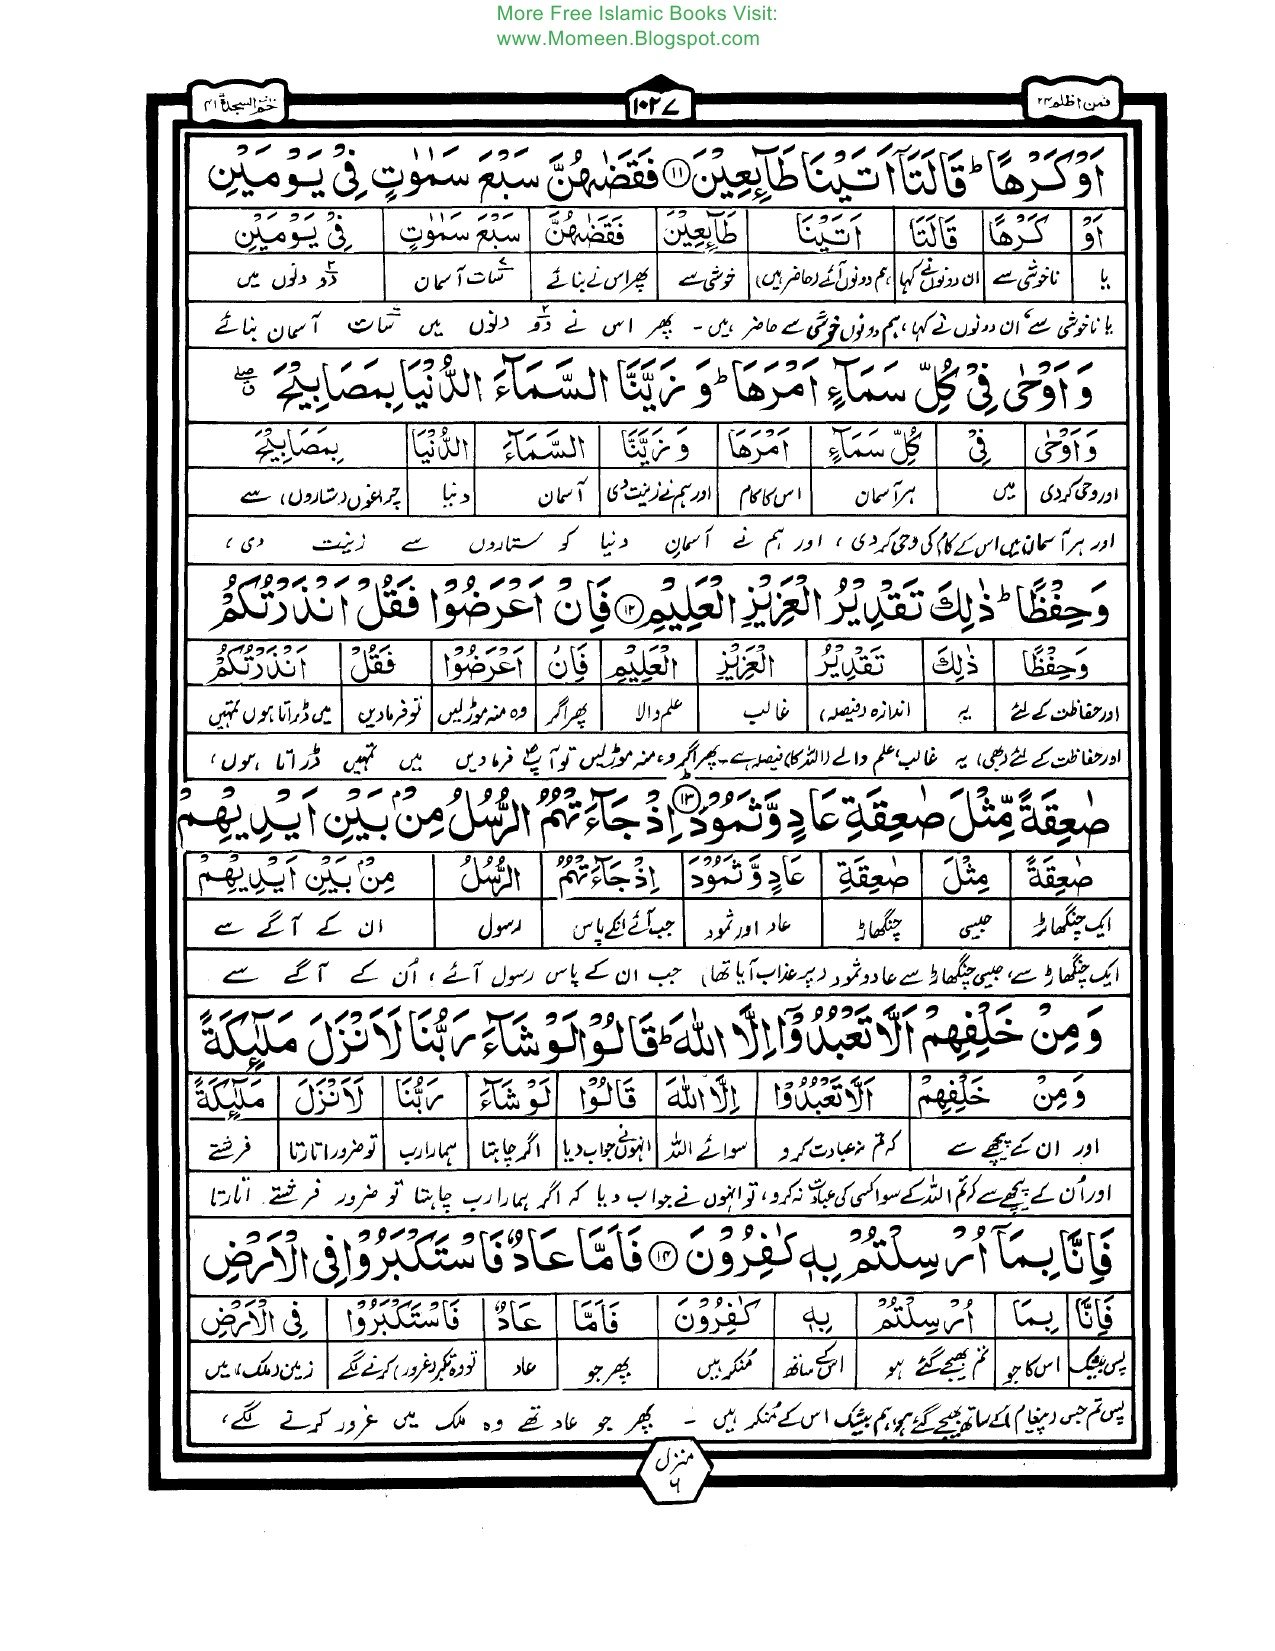 More Free Islamic Books Visit:
www.Momeen.Blogspot.com
فمن اظلم ۲۴
۱۰۲۷
حٰم السجدة ۴۱
اَوْ كَرْهًا ؕ قَالَتَاۤ اَتَیْنَا طَآىِٕعِیْنَ ⑪ فَقَضٰىهُنَّ سَبْعَ سَمٰوٰتٍ فِیْ یَوْمَیْنِ
اَوْ كَرْهًا قَالَتَا اَتَیْنَا طَآىِٕعِیْنَ فَقَضٰىهُنَّ سَبْعَ سَمٰوٰتٍ فِیْ یَوْمَیْنِ
یا ناخوشی سے ان دونوں نے کہا ہم دونوں آئے (حاضر ہیں) خوشی سے پھر اس نے بنائے سات آسمان دو دنوں میں
یا ناخوشی سے، ان دونوں نے کہا، ہم دونوں خوشی سے حاضر ہیں ۔ پھر اس نے دو دنوں میں سات آسمان بنائے
وَ اَوْحٰى فِیْ كُلِّ سَمَآءٍ اَمْرَهَا ؕ وَ زَیَّنَّا السَّمَآءَ الدُّنْیَا بِمَصَابِیْحَ ۖۗ
وَ اَوْحٰى فِیْ كُلِّ سَمَآءٍ اَمْرَهَا وَ زَیَّنَّا السَّمَآءَ الدُّنْیَا بِمَصَابِیْحَ
اور وحی کر دی میں ہر آسمان اس کا کام اور ہم نے زینت دی آسمان دنیا چراغوں (ستاروں) سے
اور ہر آسمان میں اس کے کام کی وحی کر دی، اور ہم نے آسمانِ دنیا کو ستاروں سے زینت دی،
وَ حِفْظًا ؕ ذٰلِكَ تَقْدِیْرُ الْعَزِیْزِ الْعَلِیْمِ ⑫ فَاِنْ اَعْرَضُوْا فَقُلْ اَنْذَرْتُكُمْ
وَ حِفْظًا ذٰلِكَ تَقْدِیْرُ الْعَزِیْزِ الْعَلِیْمِ فَاِنْ اَعْرَضُوْا فَقُلْ اَنْذَرْتُكُمْ
اور حفاظت کے لئے یہ اندازہ (فیصلہ) غالب علم والا پھر اگر وہ منہ موڑ لیں تو فرما دیں میں ڈراتا ہوں تمہیں
اور حفاظت کے لئے (بھی) یہ غالب، علم والے (اللہ کا) فیصلہ ہے ۔ پھر اگر وہ منہ موڑ لیں تو آپؐ فرما دیں میں تمہیں ڈراتا ہوں،
صٰعِقَةً مِّثْلَ صٰعِقَةِ عَادٍ وَّ ثَمُوْدَ ⑬ اِذْ جَآءَتْهُمُ الرُّسُلُ مِنْۢ بَیْنِ اَیْدِیْهِمْ
صٰعِقَةً مِّثْلَ صٰعِقَةِ عَادٍ وَّ ثَمُوْدَ اِذْ جَآءَتْهُمُ الرُّسُلُ مِنْۢ بَیْنِ اَیْدِیْهِمْ
ایک چنگھاڑ جیسی چنگھاڑ عاد اور ثمود جب آئے انکے پاس رسول ان کے آگے سے
ایک چنگھاڑ سے، جیسی چنگھاڑ سے عاد و ثمود (پر عذاب آیا تھا) جب ان کے پاس رسول آئے، اُن کے آگے سے
وَ مِنْ خَلْفِهِمْ اَلَّا تَعْبُدُوْۤا اِلَّا اللّٰهَ ؕ قَالُوْا لَوْ شَآءَ رَبُّنَا لَاَنْزَلَ مَلٰٓىِٕكَةً
وَ مِنْ خَلْفِهِمْ اَلَّا تَعْبُدُوْۤا اِلَّا اللّٰهَ قَالُوْا لَوْ شَآءَ رَبُّنَا لَاَنْزَلَ مَلٰٓىِٕكَةً
اور ان کے پیچھے سے کہ تم نہ عبادت کرو سوائے اللہ انہوں نے جواب دیا اگر چاہتا ہمارا رب تو ضرور اتارتا فرشتے
اور اُن کے پیچھے سے کہ تم اللہ کے سوا کسی کی عبادت نہ کرو، تو انہوں نے جواب دیا کہ اگر ہمارا رب چاہتا تو ضرور فرشتے اتارتا
فَاِنَّا بِمَاۤ اُرْسِلْتُمْ بِهٖ كٰفِرُوْنَ ⑭ فَاَمَّا عَادٌ فَاسْتَكْبَرُوْا فِی الْاَرْضِ
فَاِنَّا بِمَا اُرْسِلْتُمْ بِهٖ كٰفِرُوْنَ فَاَمَّا عَادٌ فَاسْتَكْبَرُوْا فِی الْاَرْضِ
پس بیشک اس کا جو تم بھیجے گئے ہو اس کے ساتھ منکر ہیں پھر جو عاد تو وہ تکبر (غرور) کرنے لگے زمین (ملک) میں
پس تم جس (پیغام) کے ساتھ بھیجے گئے ہو، ہم بیشک اس کے منکر ہیں ۔ پھر جو عاد تھے وہ ملک میں غرور کرنے لگے،
منزل
۶